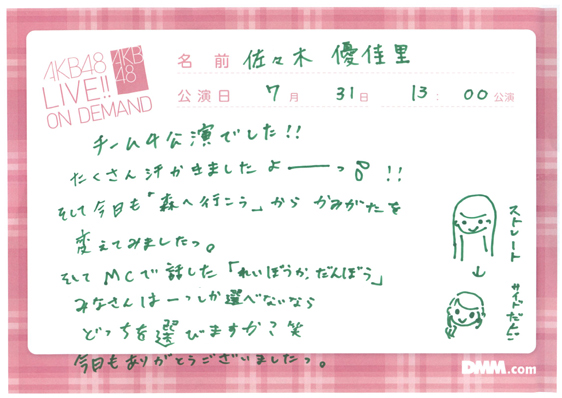 AKB48
LIVE!!
ON DEMAND
AKB
48
名 前 佐々木 優佳里
公演日 7月 31日 13:00公演
チーム4公演でした!!
たくさん汗かきましたよーーっ!!
そして今日も「森へ行こう」からかみがたを
変えてみましたっ。
そしてMCで話した「れいぼうか、だんぼう」
みなさんは一つしか選べないなら
どっちを選びますか?笑
今日もありがとうございましたっ。
ストレート
↓
サイドだんご
DMM.com